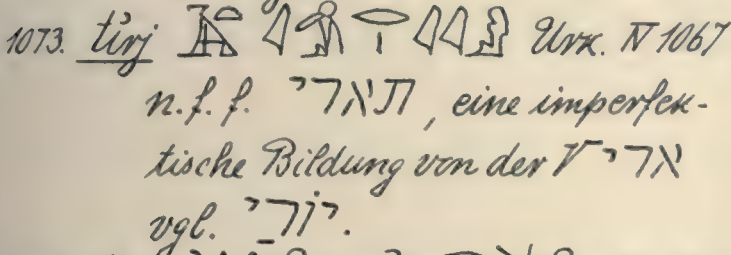 1073. tirj Urk. IV 1067
n. f. f. תארי, eine imperfek-
tische Bildung von der √ ארי
vgl. יוֹרַי.